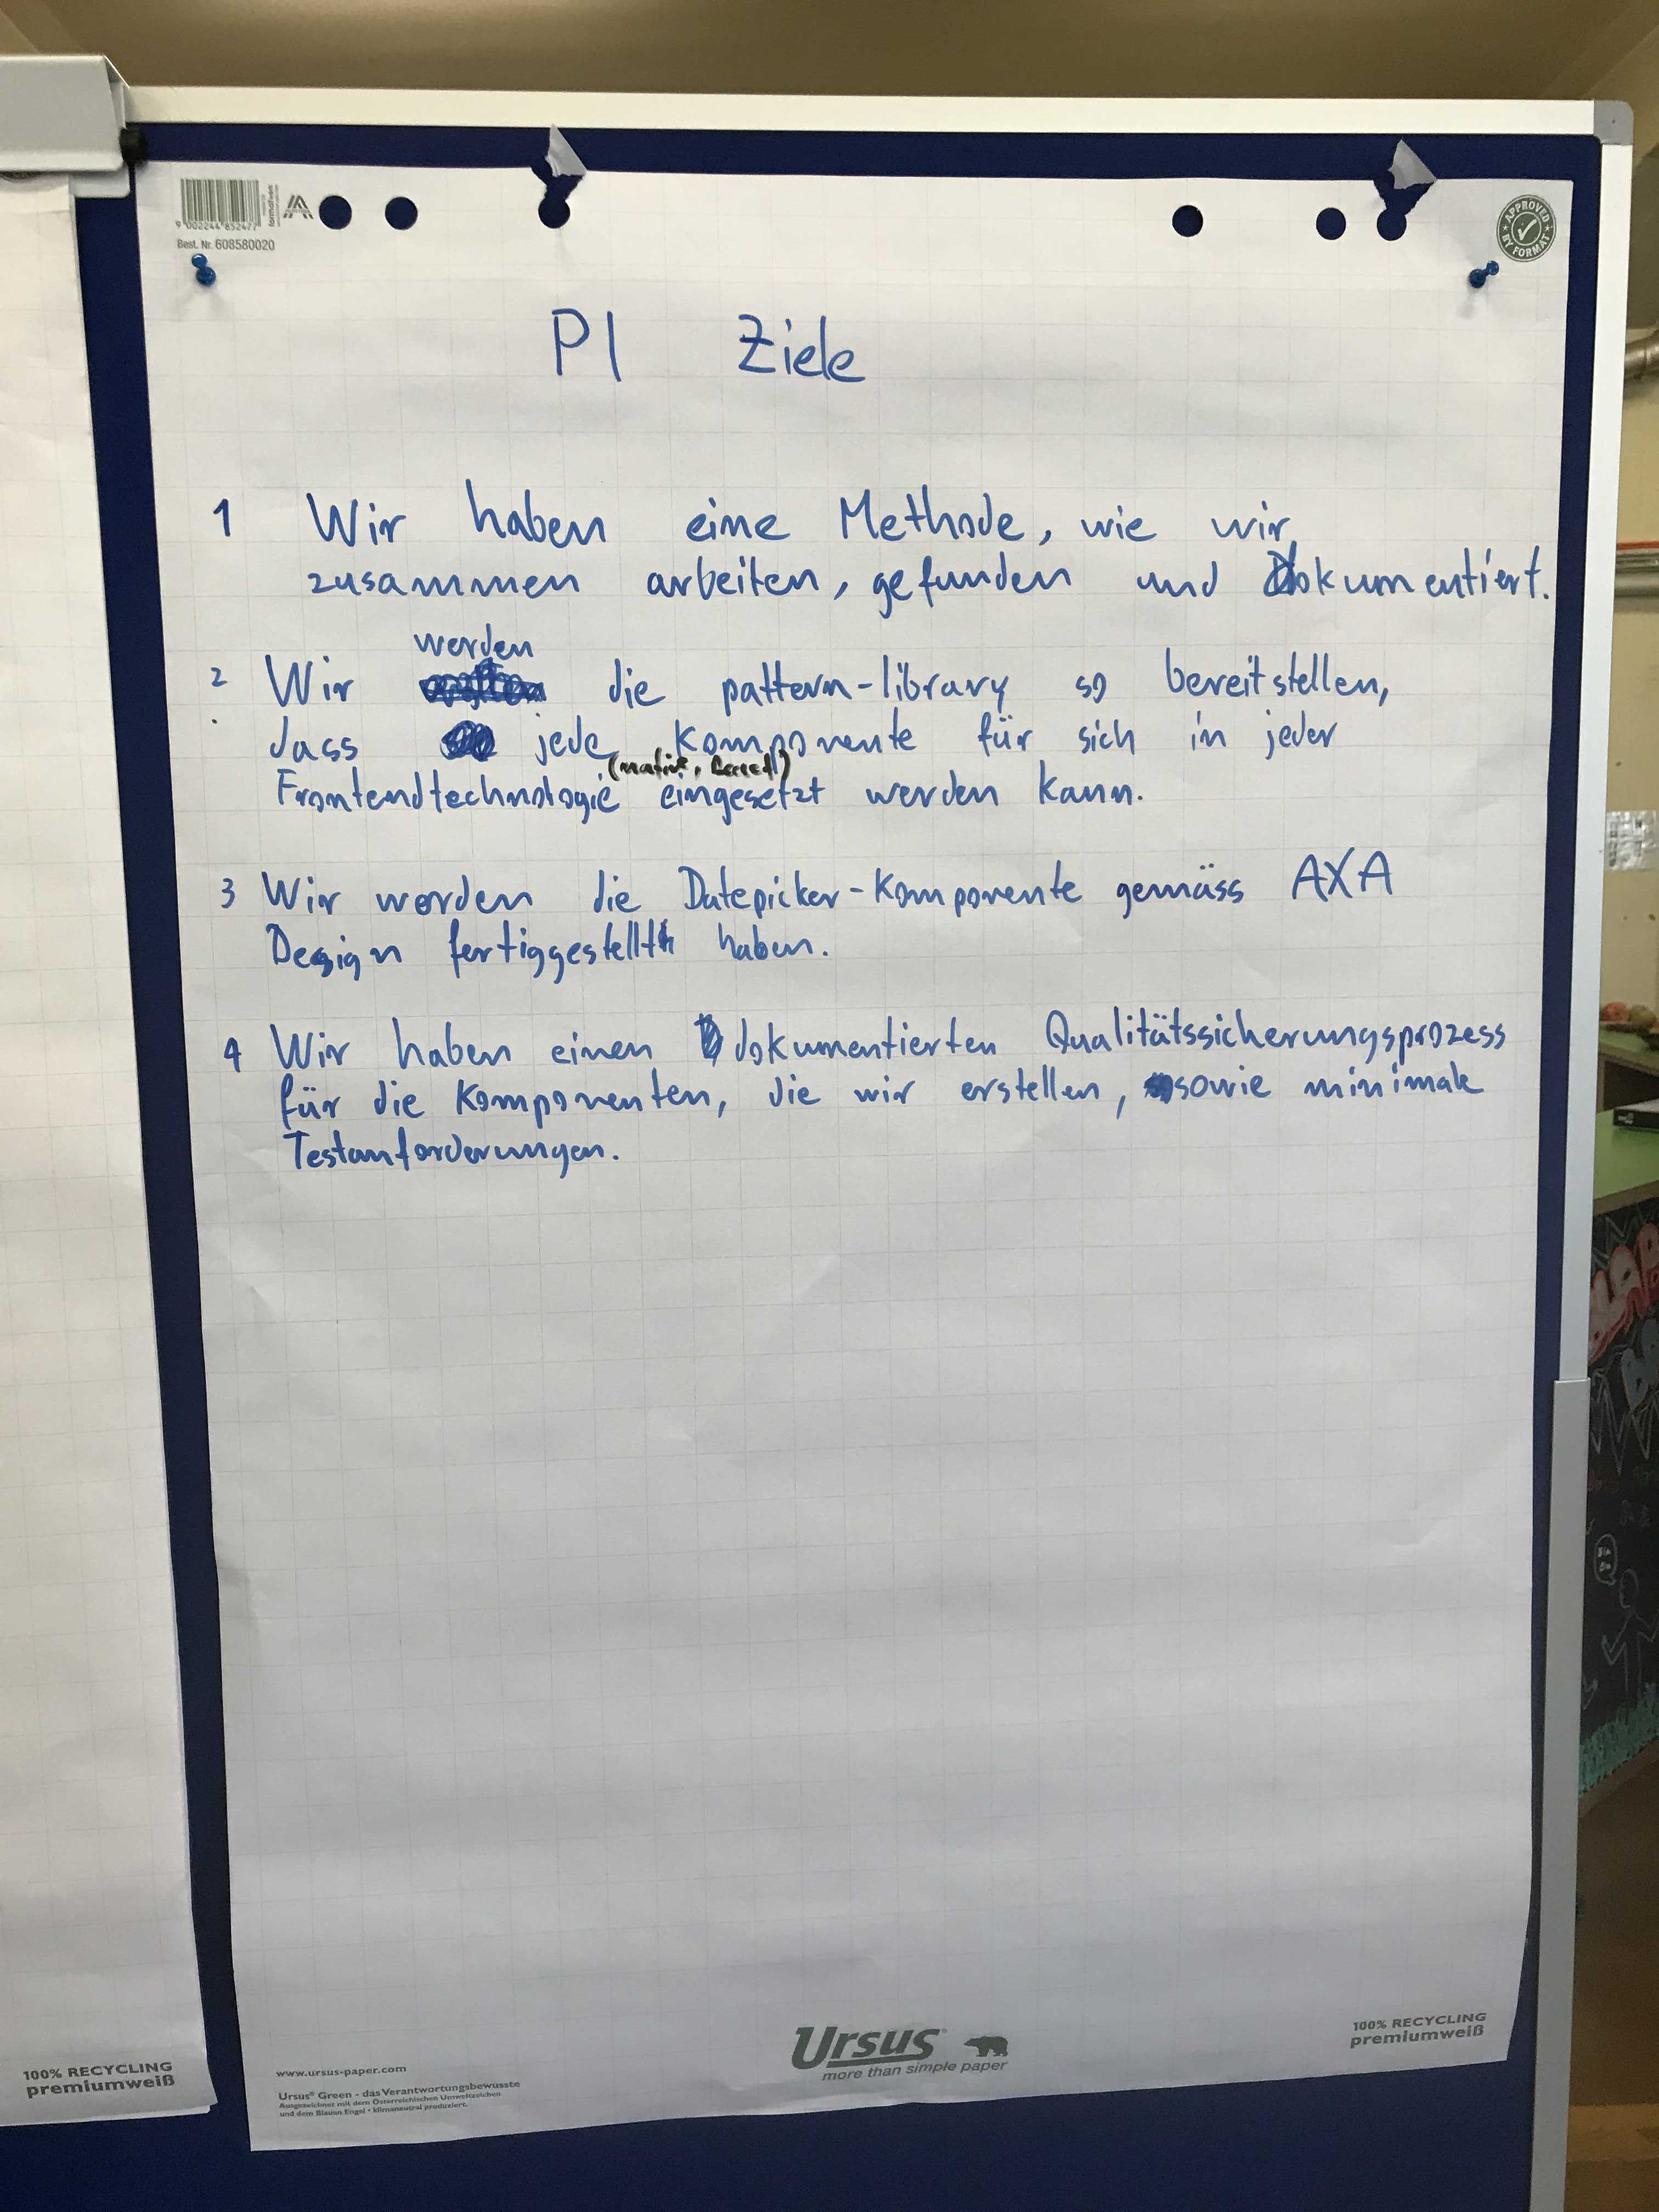 9 002244 852477
Best. Nr. 608580020
APPROVED BY FORMAT
PI Ziele
1 Wir haben eine Methode, wie wir
zusammen arbeiten, gefunden und Dokumentiert.
werden
2 Wir die pattern-library so bereitstellen,
dass jede Komponente für sich in jeder
(native, React)
Frontendtechnologie eingesetzt werden kann.
3 Wir werden die Datepicker-Komponente gemäss AXA
Design fertiggestellt haben.
4 Wir haben einen dokumentierten Qualitätssicherungsprozess
für die Komponenten, die wir erstellen, sowie minimale
Testanforderungen.
100% RECYCLING
premiumweiß
www.ursus-paper.com
Ursus® Green - das Verantwortungsbewusste
Ausgezeichnet mit dem Österreichischen Umweltzeichen
und dem Blauen Engel • klimaneutral produziert.
Ursus
more than simple paper
100% RECYCLING
premiumweiß